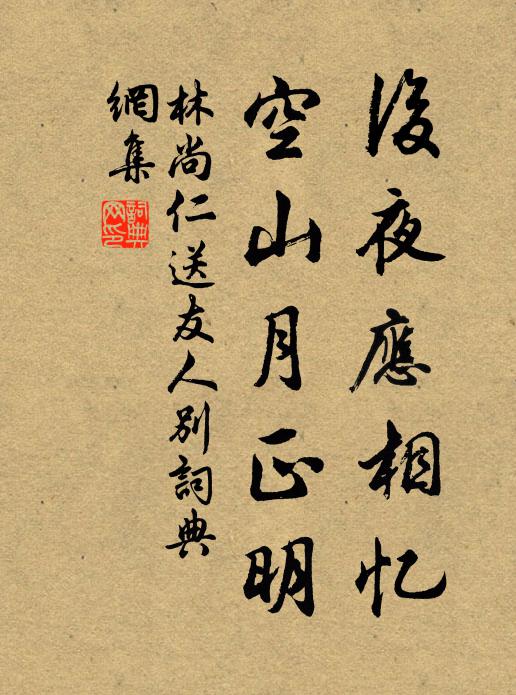 後夜應相忆
空山月正明
林尚仁送友人别詞典
網集
詞典
网印